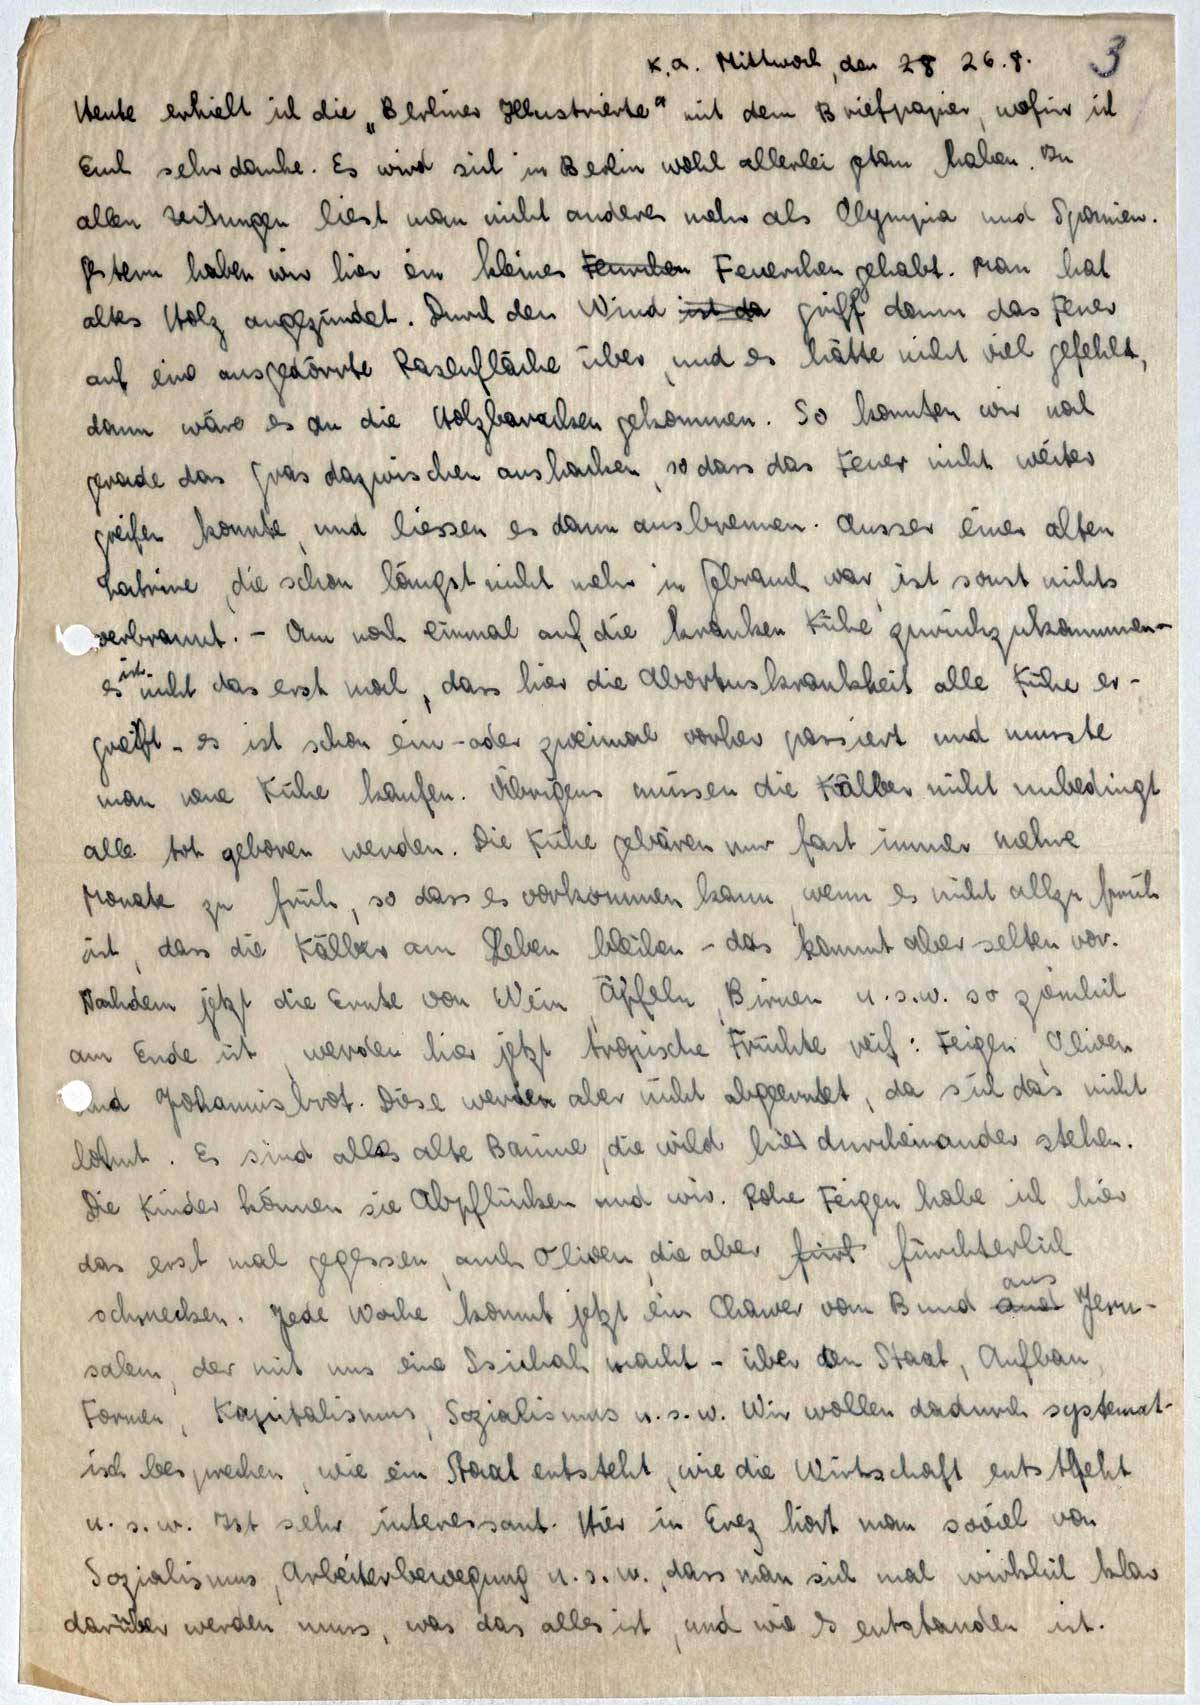 K.A. Mittwoch, den 28 26.8. 3
Heute erhielt ich die „Berliner Illustrierte" mit dem Briefpapier, wofür ich
Euch sehr danke. Es wird sich in Berlin wohl allerlei getan haben. In
allen Zeitungen liest man nicht anderes mehr als Olympia und Spanien.
Gestern haben wir hier ein kleines Feurchen Feuerchen gehabt. Man hat
altes Holz angezündet. Durch den Wind ist da griff dann das Feuer
auf eine ausgedörrte Rasenfläche über, und es hätte nicht viel gefehlt,
dann wäre es an die Holzbaracken gekommen. So konnten wir noch
gerade das Gras dazwischen aushacken, so dass das Feuer nicht weiter
greifen konnte, und liessen es dann ausbrennen. Ausser einer alten
Latrine, die schon längst nicht mehr in Gebrauch war, ist sonst nichts
verbrannt. - Um noch einmal auf die kranken Kühe zurückzukommen -
es ist nicht das erst mal, dass hier die Abortuskrankheit alle Kühe er-
greift - es ist schon ein- oder zweimal vorher passiert und musste
man neue Kühe kaufen. Übrigens müssen die Kälber nicht unbedingt
alle tot geboren werden. Die Kühe gebären nur fast immer mehre
Monate zu früh, so dass es vorkommen kann, wenn es nicht allzu früh
ist, dass die Kälber am Leben bleiben - das kommt aber selten vor.
Nachdem jetzt die Ernte von Wein, Äpfeln, Birnen u.s.w. so ziemlich
am Ende ist, werden hier jetzt tropische Früchte reif: Feigen, Oliven
und Johannisbrot. Diese werden aber nicht abgeerntet, da sich das nicht
lohnt. Es sind alles alte Bäume, die wild hier durcheinander stehen.
Die Kinder können sie Abpflücken und wir. Rohe Feigen habe ich hier
das erst mal gegessen, auch Oliven, die aber fürt fürchterlich
schmecken. Jede Woche kommt jetzt ein Chawer vom Bund aus Jeru-
salem, der mit uns eine Ssichah macht - über den Staat, Aufbau,
Formen, Kapitalismus, Sozialismus u.s.w. Wir wollen dadurch systemat-
isch besprechen, wie ein Staat entsteht, wie die Wirtschaft entsteht
u.s.w. Ist sehr interessant. Hier in Erez hört man soviel von
Sozialismus, Arbeiterbewegung u.s.w., dass man sich mal wirklich klar
darüber werden muss, was das alles ist, und wie es entstanden ist.